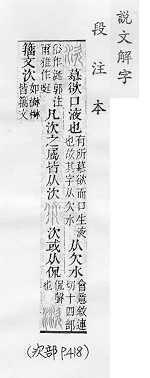 說文解字
段注本
慕欲口液也有所慕欲而口生液也故其字从欠水从欠水會意敘連切十四部
俗作涎郭注爾雅作凡㳄之屬皆从㳄㳄或从侃侃聲也
籀文㳄皆籀文
(㳄部 P.418)